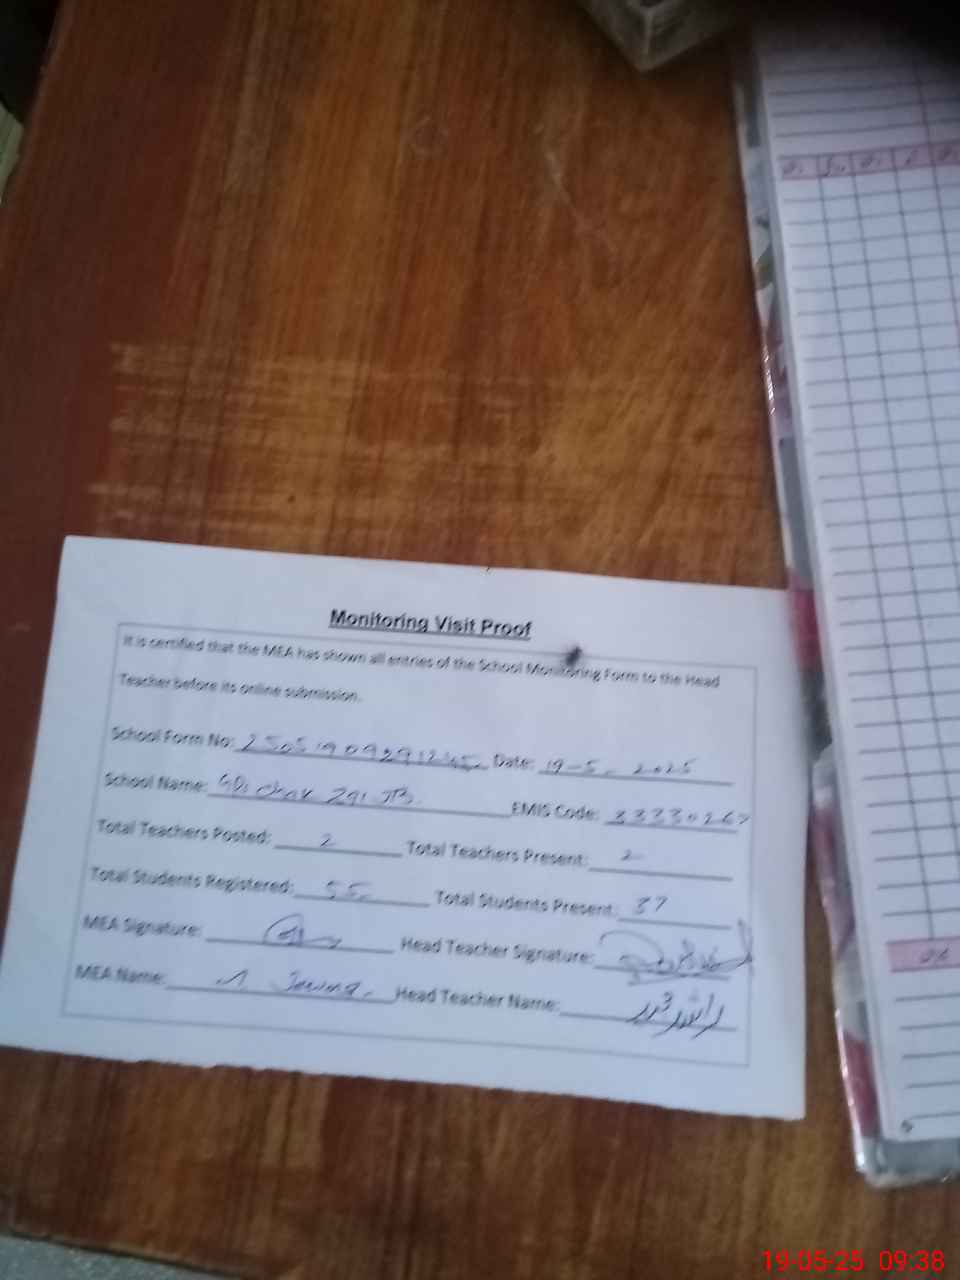 Monitoring Visit Proof
It is certified that the MEA has shown all entries of the School Monitoring Form to the Head
Teacher before its online submission.
School Form No: Date: 19-5-2025
School Name: Chak 291 JB EMIS Code:
Total Teachers Posted: 2 Total Teachers Present: 2
Total Students Registered: 55 Total Students Present: 37
MEA Signature: Head Teacher Signature:
MEA Name: Head Teacher Name:
19-05-25 09:38